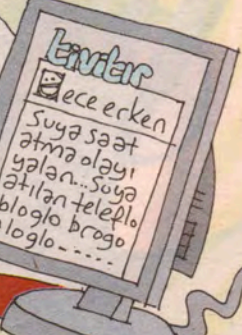 tivitır
ece erken
Suya saat
atma olayı
yalan...Suya
atılan teleflo
bloglo brogo
loglo-----